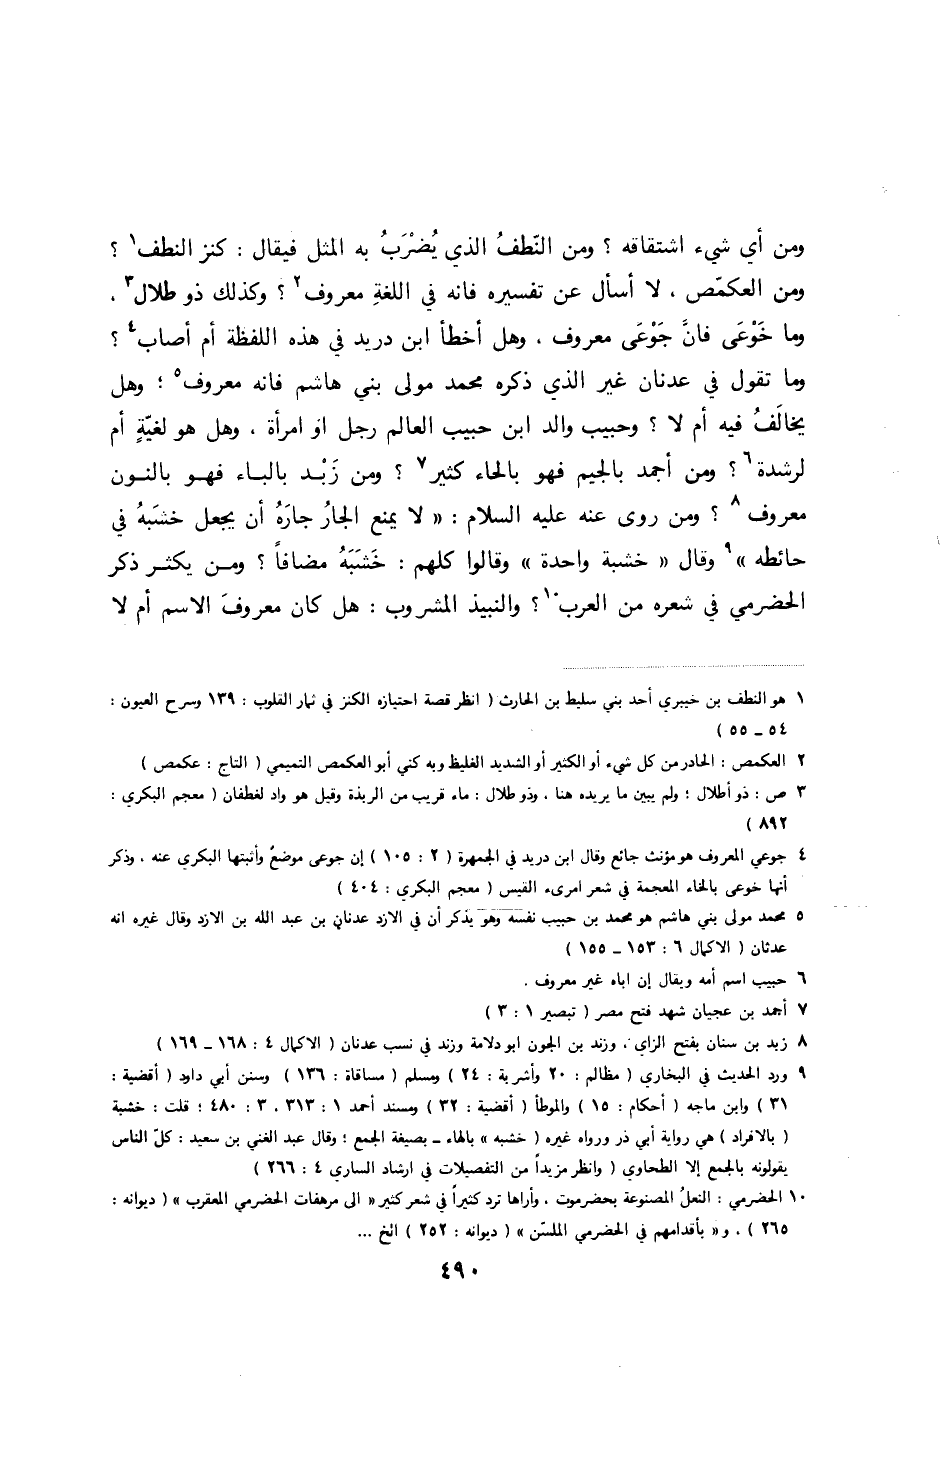 ومن أي شيء اشتقاقه ؟ ومن النّطفُ الذي يُضْرَبُ به المثل فيقال : كنز النطف١ ؟
ومن العكمّص ، لا أسأل عن تفسيره فانه في اللغةِ معروف٢ ؟ وكذلك ذو طلال٣ ،
وما خَوْعَى فانَّ جَوْعَى معروف ، وهل أخطأ ابن دريد في هذه اللفظة أم أصاب٤ ؟
وما تقول في عدنان غير الذي ذكره محمد مولى بني هاشم فانه معروف٥ ؛ وهل
يخالَفُ فيه أم لا ؟ وحبيب والد ابن حبيب العالم رجل او امرأة ، وهل هو لغيّةٍ أم
لرشدة٦ ؟ ومن أجمد بالجيم فهو بالحاء كثير٧ ؟ ومن زَبْد بالباء فهو بالنون
معروف٨ ؟ ومن روى عنه عليه السلام : « لا يمنع الجارُ جارَهُ أن يجعل خشبَهُ في
حائطه »٩ وقال « خشبة واحدة » وقالوا كلهم : خَشَبَهُ مضافاً ؟ ومن يكثر ذكر
الحضرمي في شعره من العرب١٠ ؟ والنبيذ المشروب : هل كان معروفَ الاسم أم لا
١ هو النطف بن خيبري أحد بني سليط بن الحارث ( انظر قصة احتيازه الكنز في ثمار القلوب : ١٣٩ وسرح العيون :
٥٤ ــ ٥٥ )
٢ العكمص : الحادر من كل شيء أو الكثير أو الشديد الغليظ وبه كني أبو العكمص التميمي ( التاج : عكمص )
٣ ص : ذو أطلال ؛ ولم يبين ما يريده هنا ، وذو طلال : ماء قريب من الربذة وقيل هو واد لغطفان ( معجم البكري :
٨٩٢ )
٤ جوعى المعروف هو مؤنث جائع وقال ابن دريد في الجمهرة ( ٢ : ١٠٥ ) إن جوعى موضعٌ وأثبتها البكري عنه ، وذكر
أنها خوعى بالخاء المعجمة في شعر امرىء القيس ( معجم البكري : ٤٠٤ )
٥ محمد مولى بني هاشم هو محمد بن حبيب نفسه وهو يذكر أن في الازد عدنان بن عبد الله بن الازد وقال غيره انه
عدثان ( الاكمال ٦ : ١٥٣ ــ ١٥٥ )
٦ حبيب اسم أمه ويقال إن اباه غير معروف .
٧ أجمد بن عجيان شهد فتح مصر ( تبصير ١ : ٣ )
٨ زبد بن سنان بفتح الزاي ، وزند بن الجون ابو دلامة وزند في نسب عدنان ( الاكمال ٤ : ١٦٨ ــ ١٦٩ )
٩ ورد الحديث في البخاري ( مظالم : ٢٠ وأشربة : ٢٤ ) ومسلم ( مساقاة : ١٣٦ ) وسنن أبي داود ( أقضية :
٣١ ) وابن ماجه ( أحكام : ١٥ ) والموطأ ( أقضية : ٣٢ ) ومسند أحمد ١ : ٣١٣ ، ٣ : ٤٨٠ ؛ قلت : خشبة
( بالافراد ) هي رواية أبي ذر ورواه غيره ( خشبه » بالهاء ــ بصيغة الجمع ؛ وقال عبد الغني بن سعيد : كلّ الناس
يقولونه بالجمع إلا الطحاوي ( وانظر مزيداً من التفصيلات في ارشاد الساري ٤ : ٢٦٦ )
١٠ الحضرمي : النعلُ المصنوعة بحضرموت ، وأراها ترد كثيراً في شعر كثير « الى مرهفات الحضرمي المعقرب » ( ديوانه :
٢٦٥ ) ، و« بأقدامهم في الحضرمي الملسّن » ( ديوانه : ٢٥٢ ) الخ ...
٤٩٠